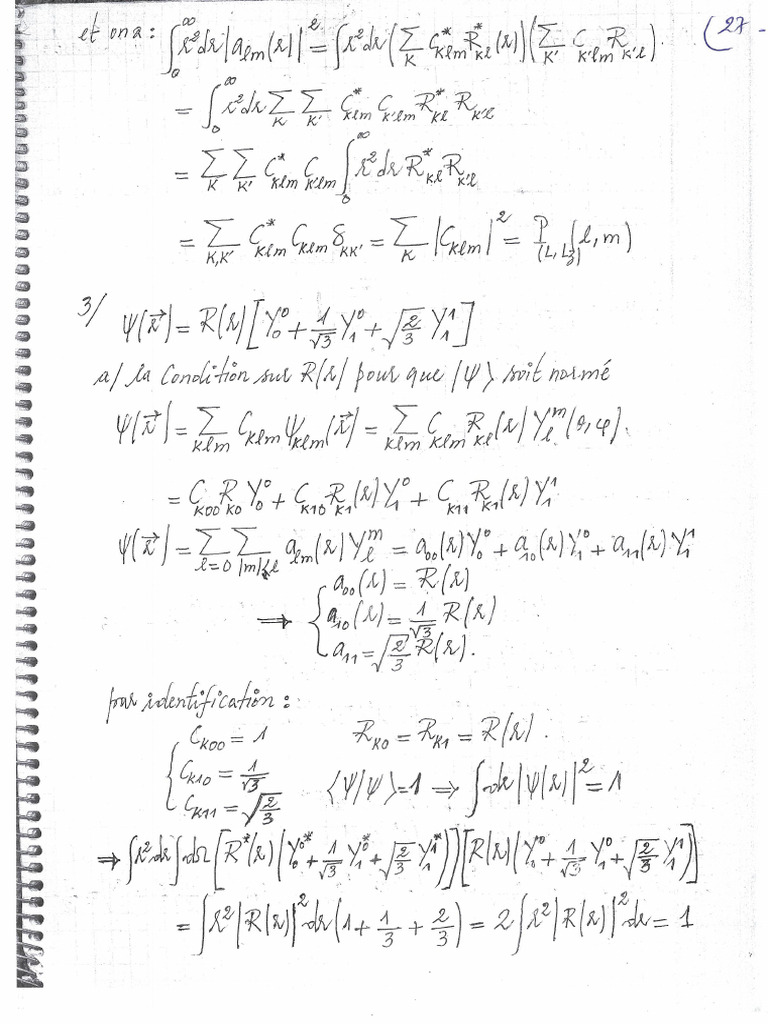 et on a : ∫₀^∞ r²dr |a_{lm}(r)|² = ∫ r²dr (∑_K C*_{klm} R*_{kl}(r)) (∑_{K'} C_{k'lm} R_{k'l}). (27-
= ∫₀^∞ r²dr ∑_K ∑_{K'} C*_{klm} C_{k'lm} R*_{kl} R_{k'l}
= ∑_K ∑_{K'} C*_{klm} C_{k'lm} ∫₀^∞ r²dr R*_{kl} R_{k'l}
= ∑_{K,K'} C*_{klm} C_{klm} δ_{KK'} = ∑_K |C_{klm}|² = P_{(L,Lz)}(l,m)
3/ ψ(r⃗) = R(r)[Y₀⁰ + 1/√3 Y₁⁰ + √(2/3) Y₁¹]
a/ la condition sur R(r) pour que |ψ⟩ soit normé
ψ(r⃗) = ∑_{klm} C_{klm} ψ_{klm}(r⃗) = ∑_{klm} C_{klm} R_{kl}(r) Y_l^m(θ,φ).
= C_{k00} R_{k0} Y₀⁰ + C_{k10} R_{k1}(r) Y₁⁰ + C_{k11} R_{k1}(r) Y₁¹
ψ(r⃗) = ∑_{l=0} ∑_{|m|≤l} a_{lm}(r) Y_l^m = a₀₀(r) Y₀⁰ + a₁₀(r) Y₁⁰ + a₁₁(r) Y₁¹
⇒ { a₀₀(r) = R(r)
a₁₀(r) = 1/√3 R(r)
a₁₁ = √(2/3) R(r).
par identification :
{ C_{k00} = 1 R_{k0} = R_{k1} = R(r).
C_{k10} = 1/√3 ⟨ψ|ψ⟩ = 1 ⇒ ∫dr |ψ(r)|² = 1
C_{k11} = √(2/3)
⇒ ∫r²dr ∫dΩ [R*(r) (Y₀⁰* + 1/√3 Y₁⁰* + √(2/3) Y₁¹*)] [R(r) (Y₀⁰ + 1/√3 Y₁⁰ + √(2/3) Y₁¹)]
= ∫r² |R(r)|² dr (1 + 1/3 + 2/3) = 2 ∫r² |R(r)|² dr = 1